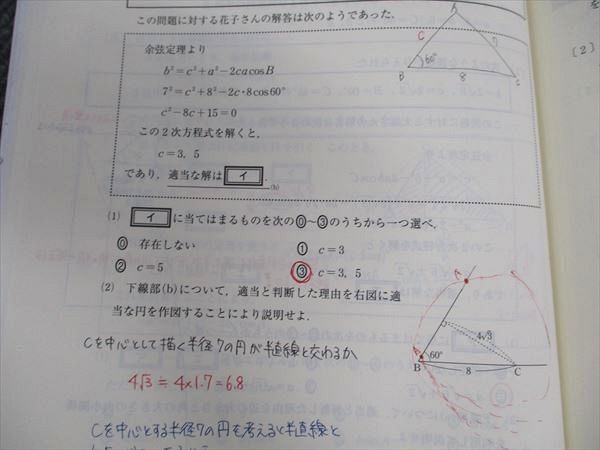 この問題に対する花子さんの解答は次のようであった.
余弦定理より
b²=c²+a²-2ca cos B
7²=c²+8²-2c・8cos 60°
c²-8c+15=0
この2次方程式を解くと,
c=3, 5
であり, 適当な解は イ .
(b)
A
c
7
60°
B
8
C
(1) イ に当てはまるものを次の⓪~③のうちから一つ選べ.
⓪ 存在しない ① c=3
② c=5 ③ c=3, 5
(2) 下線部(b)について, 適当と判断した理由を右図に適
当な円を作図することにより説明せよ.
Cを中心として描く半径7の円が半直線と交わるか
4√3 ≒ 4×1.7 = 6.8
Cを中心とする半径7の円を考えると半直線と
A
4√3
60°
B
8
C
(2)